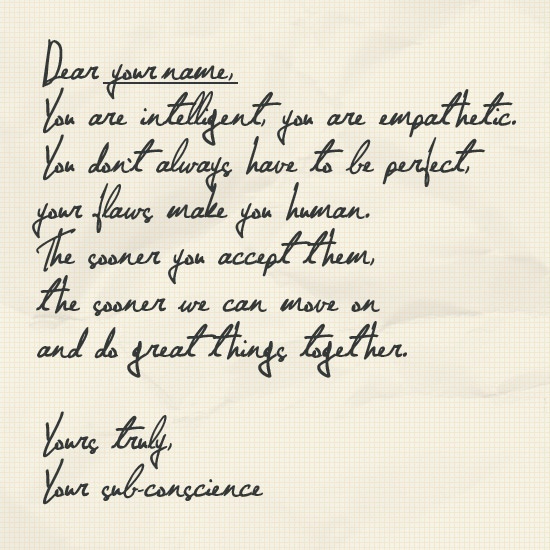 Dear your name,
You are intelligent, you are empathetic.
You don't always have to be perfect,
your flaws make you human.
The sooner you accept them,
the sooner we can move on
and do great things together.
Yours truly,
Your sub-conscience